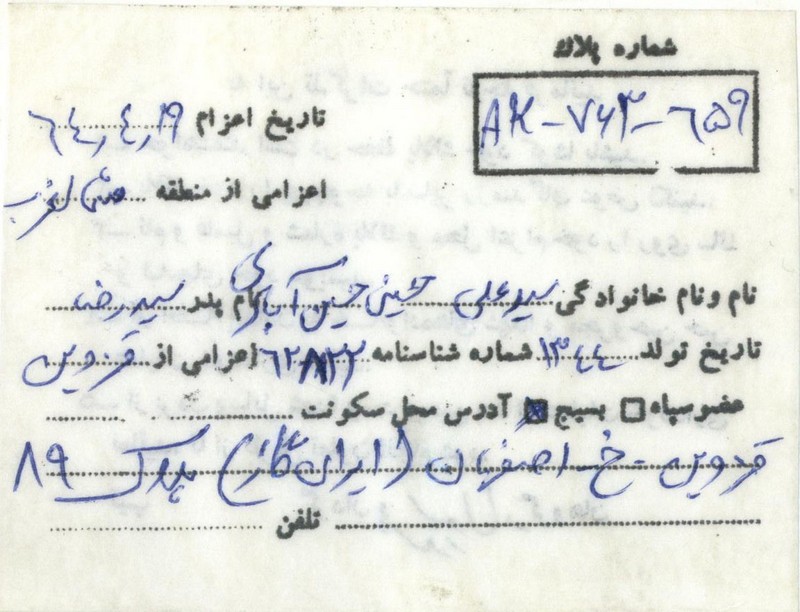 شماره پلاک
AK-۷۶۳-۶۵۹
تاریخ اعزام ۶۴٫۴٫۱۹
اعزامی از منطقه
نام و نام خانوادگی سید علی حسینی حسین آبادی نام پدر سید رضا
تاریخ تولد ۱۳۴۴ شماره شناسنامه ۶۲۸۲۲ اعزامی از قزوین
عضو سپاه □ بسیج ☒ آدرس محل سکونت
قزوین - خ - اصفهان (ایران گاز) پلاک ۸۹
تلفن